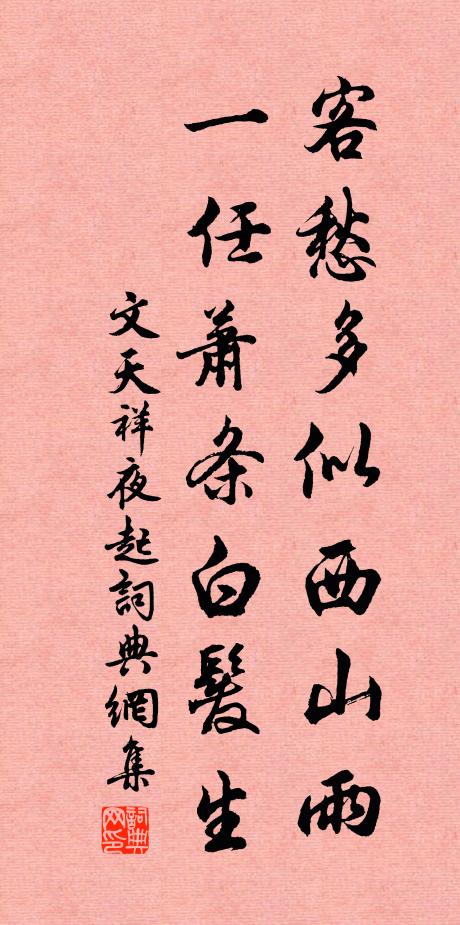 客愁多似西山雨
一任蕭条白髮生
文天祥夜起詞典網集
詞典网印